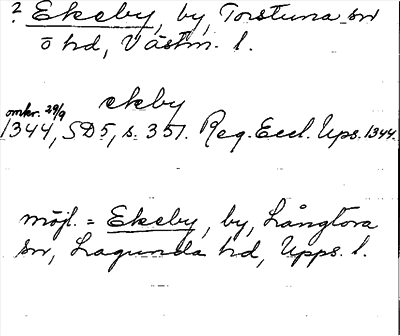 ? Ekeby, by, Torstuna sn
ö hd, Västm. l.
ekby
omkr. 29/9
1344, SD5, s. 351. Reg. Eccl. Ups. 1344.
möjl. = Ekeby, by, Långtora
sn, Lagunda hd, Upps. l.